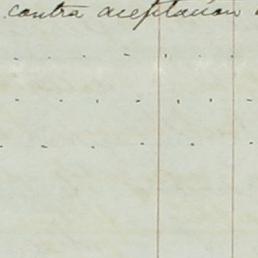 contra aceptacion